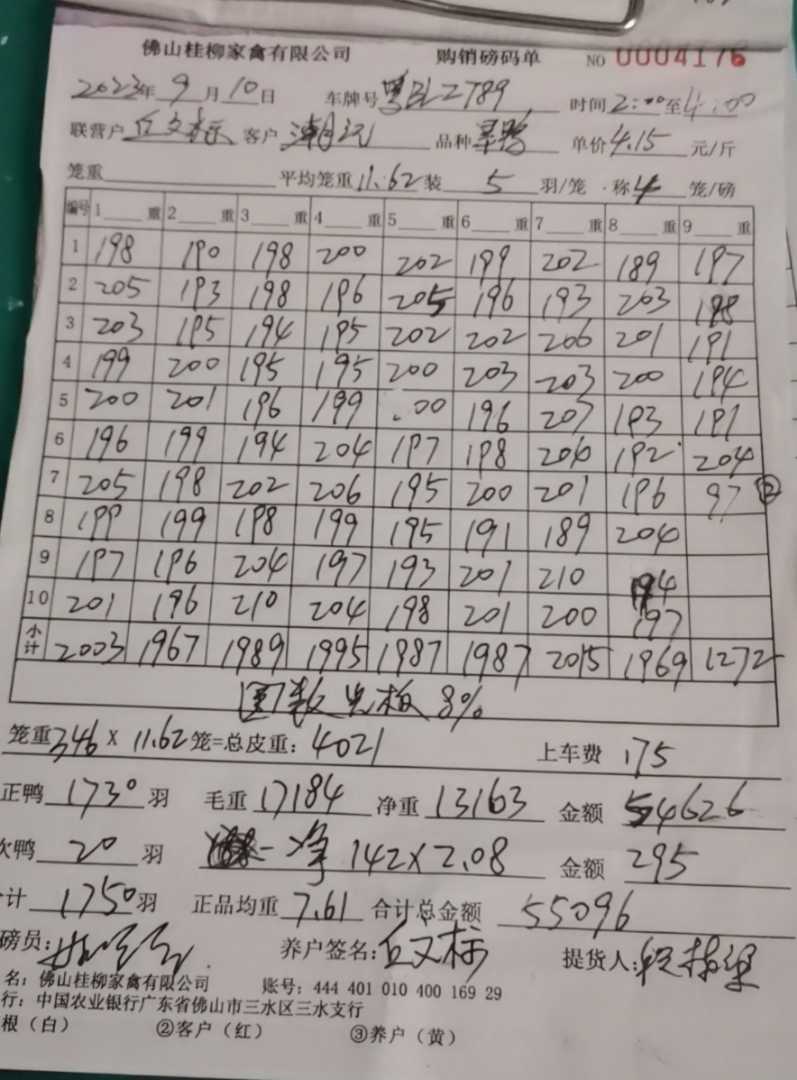 佛山桂柳家禽有限公司 购销磅码单 NO 0004176
2023年9月10日 车牌号 时间2:00至4:00
联营户 丘文标 客户 品种 单价4.15元/斤
笼重 平均笼重11.62装5羽/笼·称4笼/磅
编号 1 重 2 重 3 重 4 重 5 重 6 重 7 重 8 重 9 重
1 198 190 198 200 202 199 202 189 197
2 205 193 198 196 205 196 193 203 198
3 203 195 194 195 202 202 206 201 191
4 199 200 195 195 200 203 203 200 194
5 200 201 196 199 .00 196 207 193 191
6 196 199 194 204 197 198 204 192 204
7 205 198 202 206 195 200 201 196 97 ②
8 199 199 198 199 195 191 189 204
9 197 196 204 197 193 201 210 194
10 201 196 210 204 198 201 200 197
小计 2003 1967 1989 1995 1987 1987 2015 1969 1272
8%
笼重346×11.62笼=总皮重:4021 上车费 175
正鸭 1730 羽 毛重 17184 净重 13163 金额 54626
次鸭 20 羽 净 142×2.08 金额 295
计 1750羽 正品均重 7.61 合计总金额 55096
磅员: 养户签名:丘文标 提货人:
名:佛山桂柳家禽有限公司 账号:444 401 010 400 169 29
行:中国农业银行广东省佛山市三水区三水支行
根(白) ②客户(红) ③养户(黄)